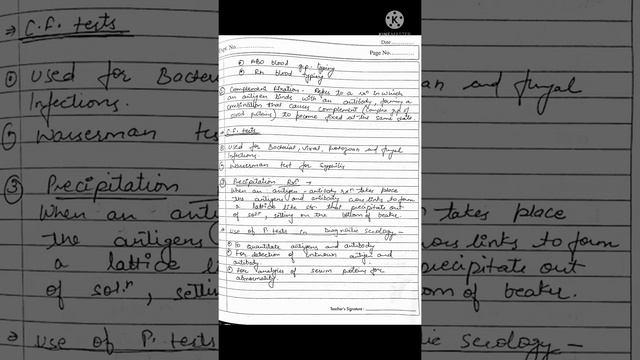 K
KINEMASTER
Date
Expt. No.
Page No.
① ABO blood grp. typing
② Rh blood typing
② Complement fixation - Refers to a rxn in which
an antigen binds with an antibody, forming a
combination that causes complement (complex grp of
blood proteins) to become fixed at the same
→ C.F. tests
① Used for Bacterial, viral, protozoan and fungal
Infections.
② Wasserman test for Syphilis
③ Precipitation Rxn →
When an antigen-antibody rxn takes place
the antigens and antibody cross links to form
a lattice like str. that precipitate out
of solⁿ, setting on the bottom of beaker.
→ Use of P. tests in Diagnostic Serology -
① To quantitate antigens and antibody
② For detection of unknown antigen and
antibody.
③ For analysis of serum proteins for
abnormality.
Teacher's Signature :
⇒ C.F. tests
① Used for Bacter
an and fungal
Infections.
② Wasserman tes
③ Precipitation
When an anti
takes place
the antigens
cross links to form
a lattice li
recipitate out
of sol.ⁿ, setti
om of beaker.
→ Use of P. tests
ic Serology -